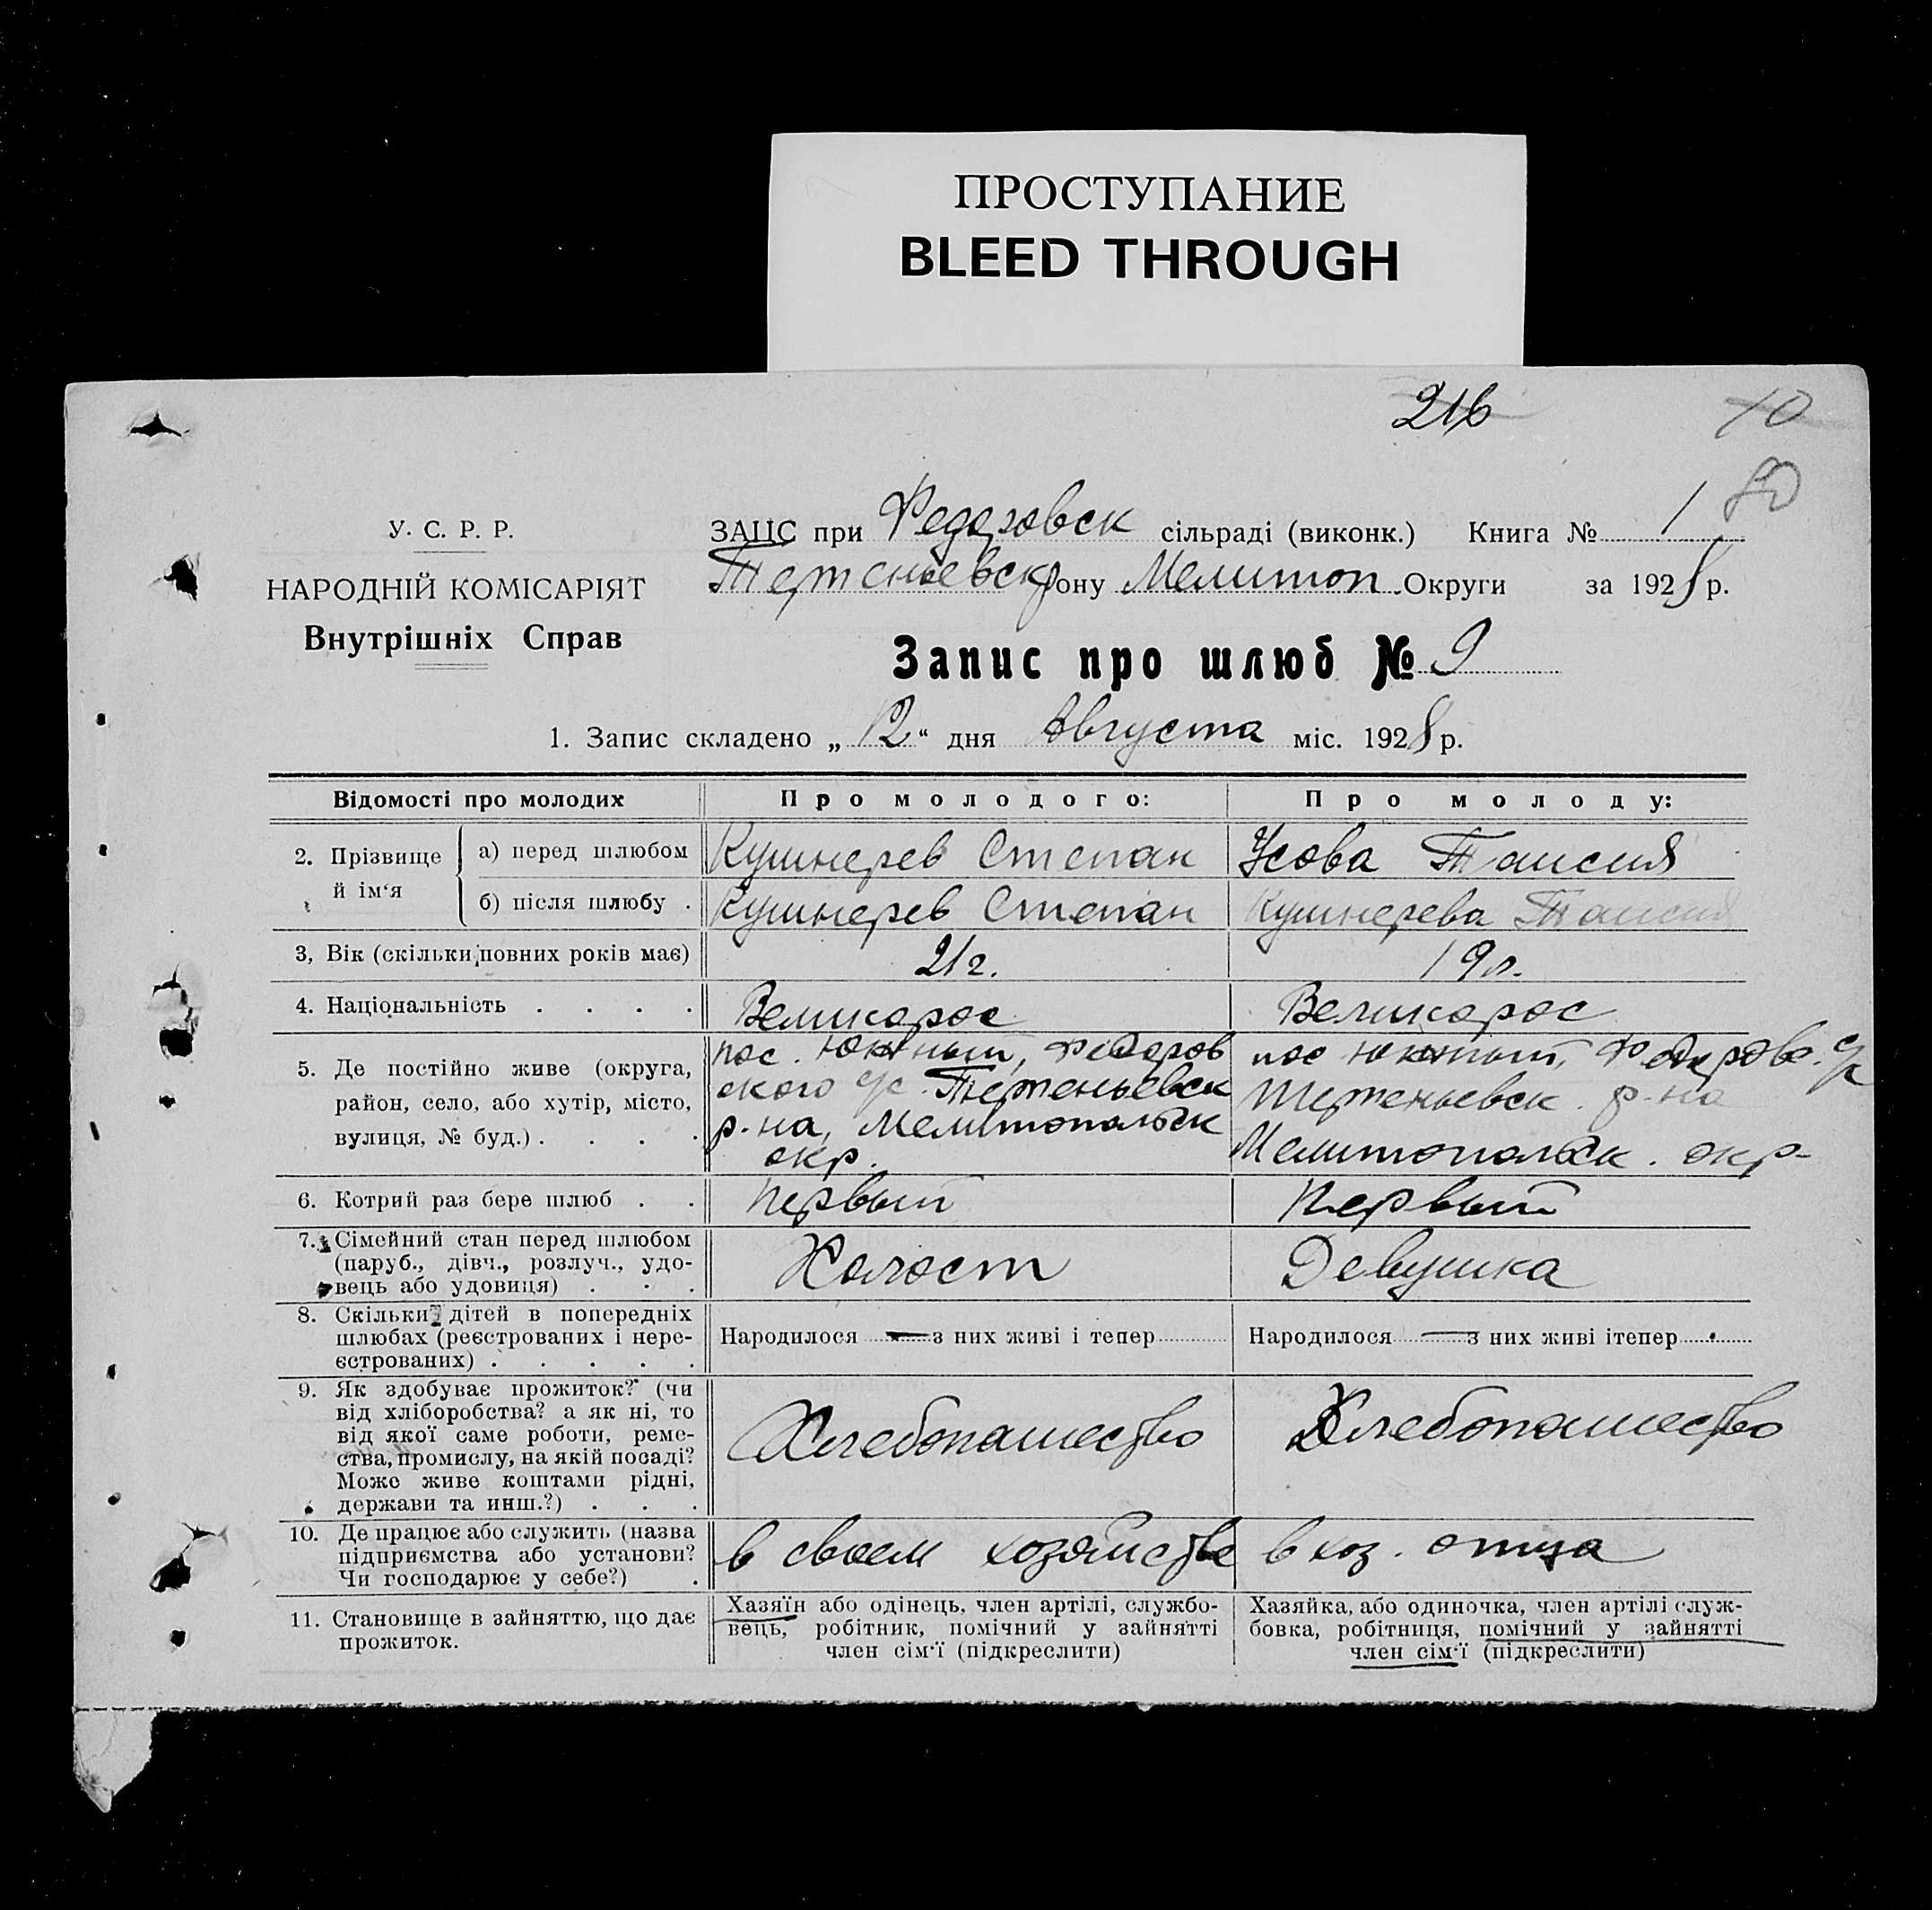 ПРОСТУПАНИЕ
BLEED THROUGH
216 10
80
У. С. Р. Р.
НАРОДНІЙ КОМІСАРІЯТ
Внутрішніх Справ
ЗАЦС при Федоровск сільраді (виконк.) Книга № 1
Терпеньевск рону Мелитоп. Округи за 1928 р.
Запис про шлюб № 9
1. Запис складено „12“ дня Августа міс. 1928 р.
Відомості про молодих Про молодого: Про молоду:
2. Прізвище й ім‘я а) перед шлюбом Кушнерев Степан Усова Таисия
б) після шлюбу . Кушнерев Степан Кушнерева Таисия
3, Вік (скільки повних років має) 21 г. 19 л.
4. Національність . . . . Великорос Великорос
5. Де постійно живе (округа, район, село, або хутір, місто, вулиця, № буд.) . . . .
пос. Южный, Федоров
ского с/с. Терпеньевск
р-на, Мелитопольск
окр.
пос Южный, Федоровс. с/с
Терпеньевск. р-на
Мелитопольск. окр-
6. Котрий раз бере шлюб . . Первый Первый
7. Сімейний стан перед шлюбом
(паруб., дівч., розлуч., удо-
вець або удовиця) . . . Холост Девушка
8. Скільки дітей в попередніх
шлюбах (реєстрованих і нере-
єстрованих) . . . . .
Народилося — з них живі і тепер
Народилося — з них живі ітепер
9. Як здобуває прожиток? (чи
від хліборобства? а як ні, то
від якої саме роботи, реме-
ства, промислу, на якій посаді?
Може живе коштами рідні,
держави та инш.?) . . .
Хлебопашество Хлебопашество
10. Де працює або служить (назва
підприємства або установи?
Чи господарює у себе?) .
в своем хозяйстве в хоз. отца
11. Становище в зайняттю, що дає
прожиток.
Хазяїн або одінець, член артілі, службо-
вець, робітник, помічний у зайнятті
член сім‘ї (підкреслити)
Хазяйка, або одиночка, член артілі служ-
бовка, робітниця, помічний у зайнятті
член сім‘ї (підкреслити)